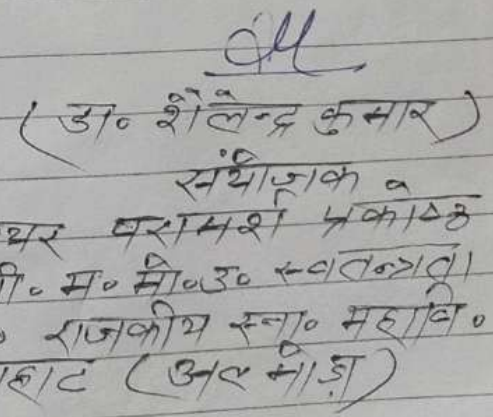 (डा० शैलेन्द्र कुमार)
संयोजक
यर परामर्श प्रकोष्ठ
म० मो०उ० स्वतन्त्रता
राजकीय स्ना० महावि०
हाट (अल्मोड़ा)